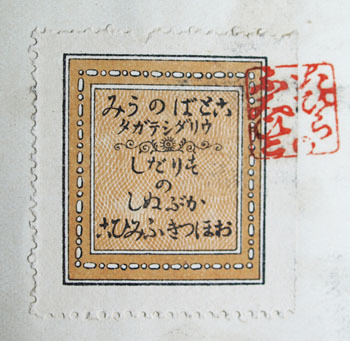 ことばのうみ
ウリダシテガタ
うりだし
の
かぶぬし
おほつきふみひこ